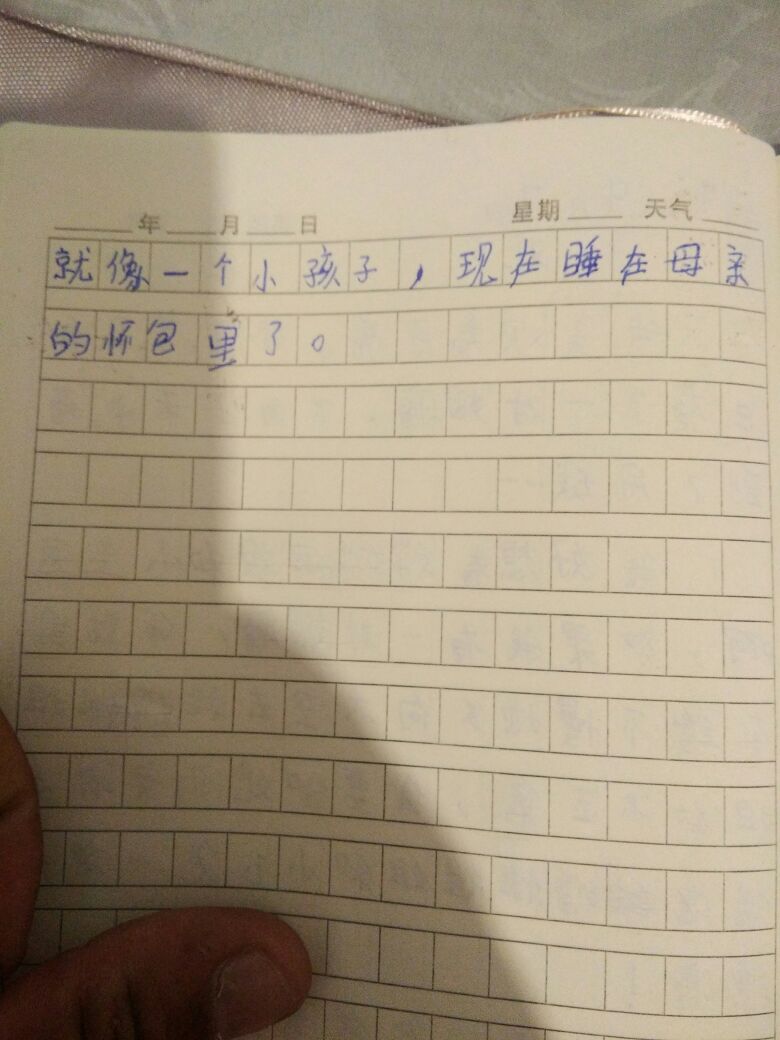 年 月 日 星期 天气
就像一个小孩子，现在睡在母亲
的怀包里了。